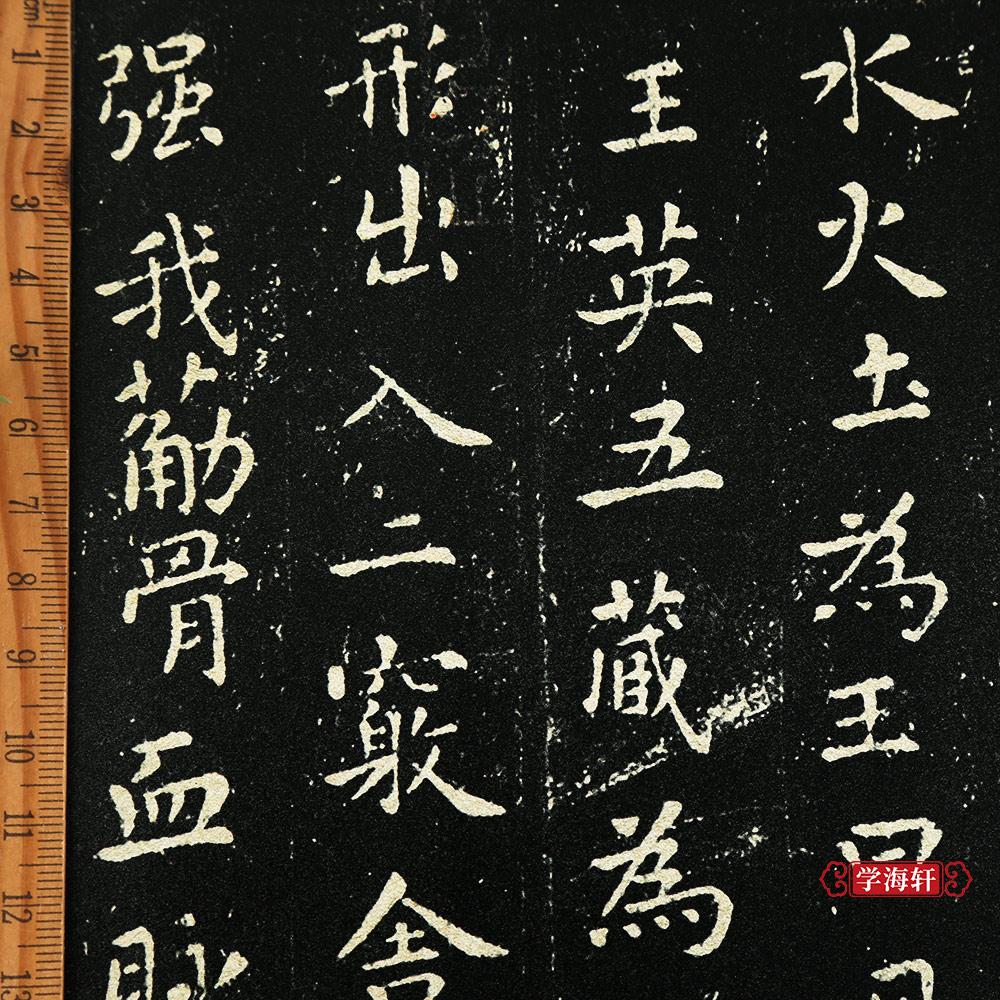 水火土為王日
王英五藏為
形出入二竅舍
强我筋骨血脉
cm 1 2 3 4 5 6 7 8 9 10 11 12 13
学海轩